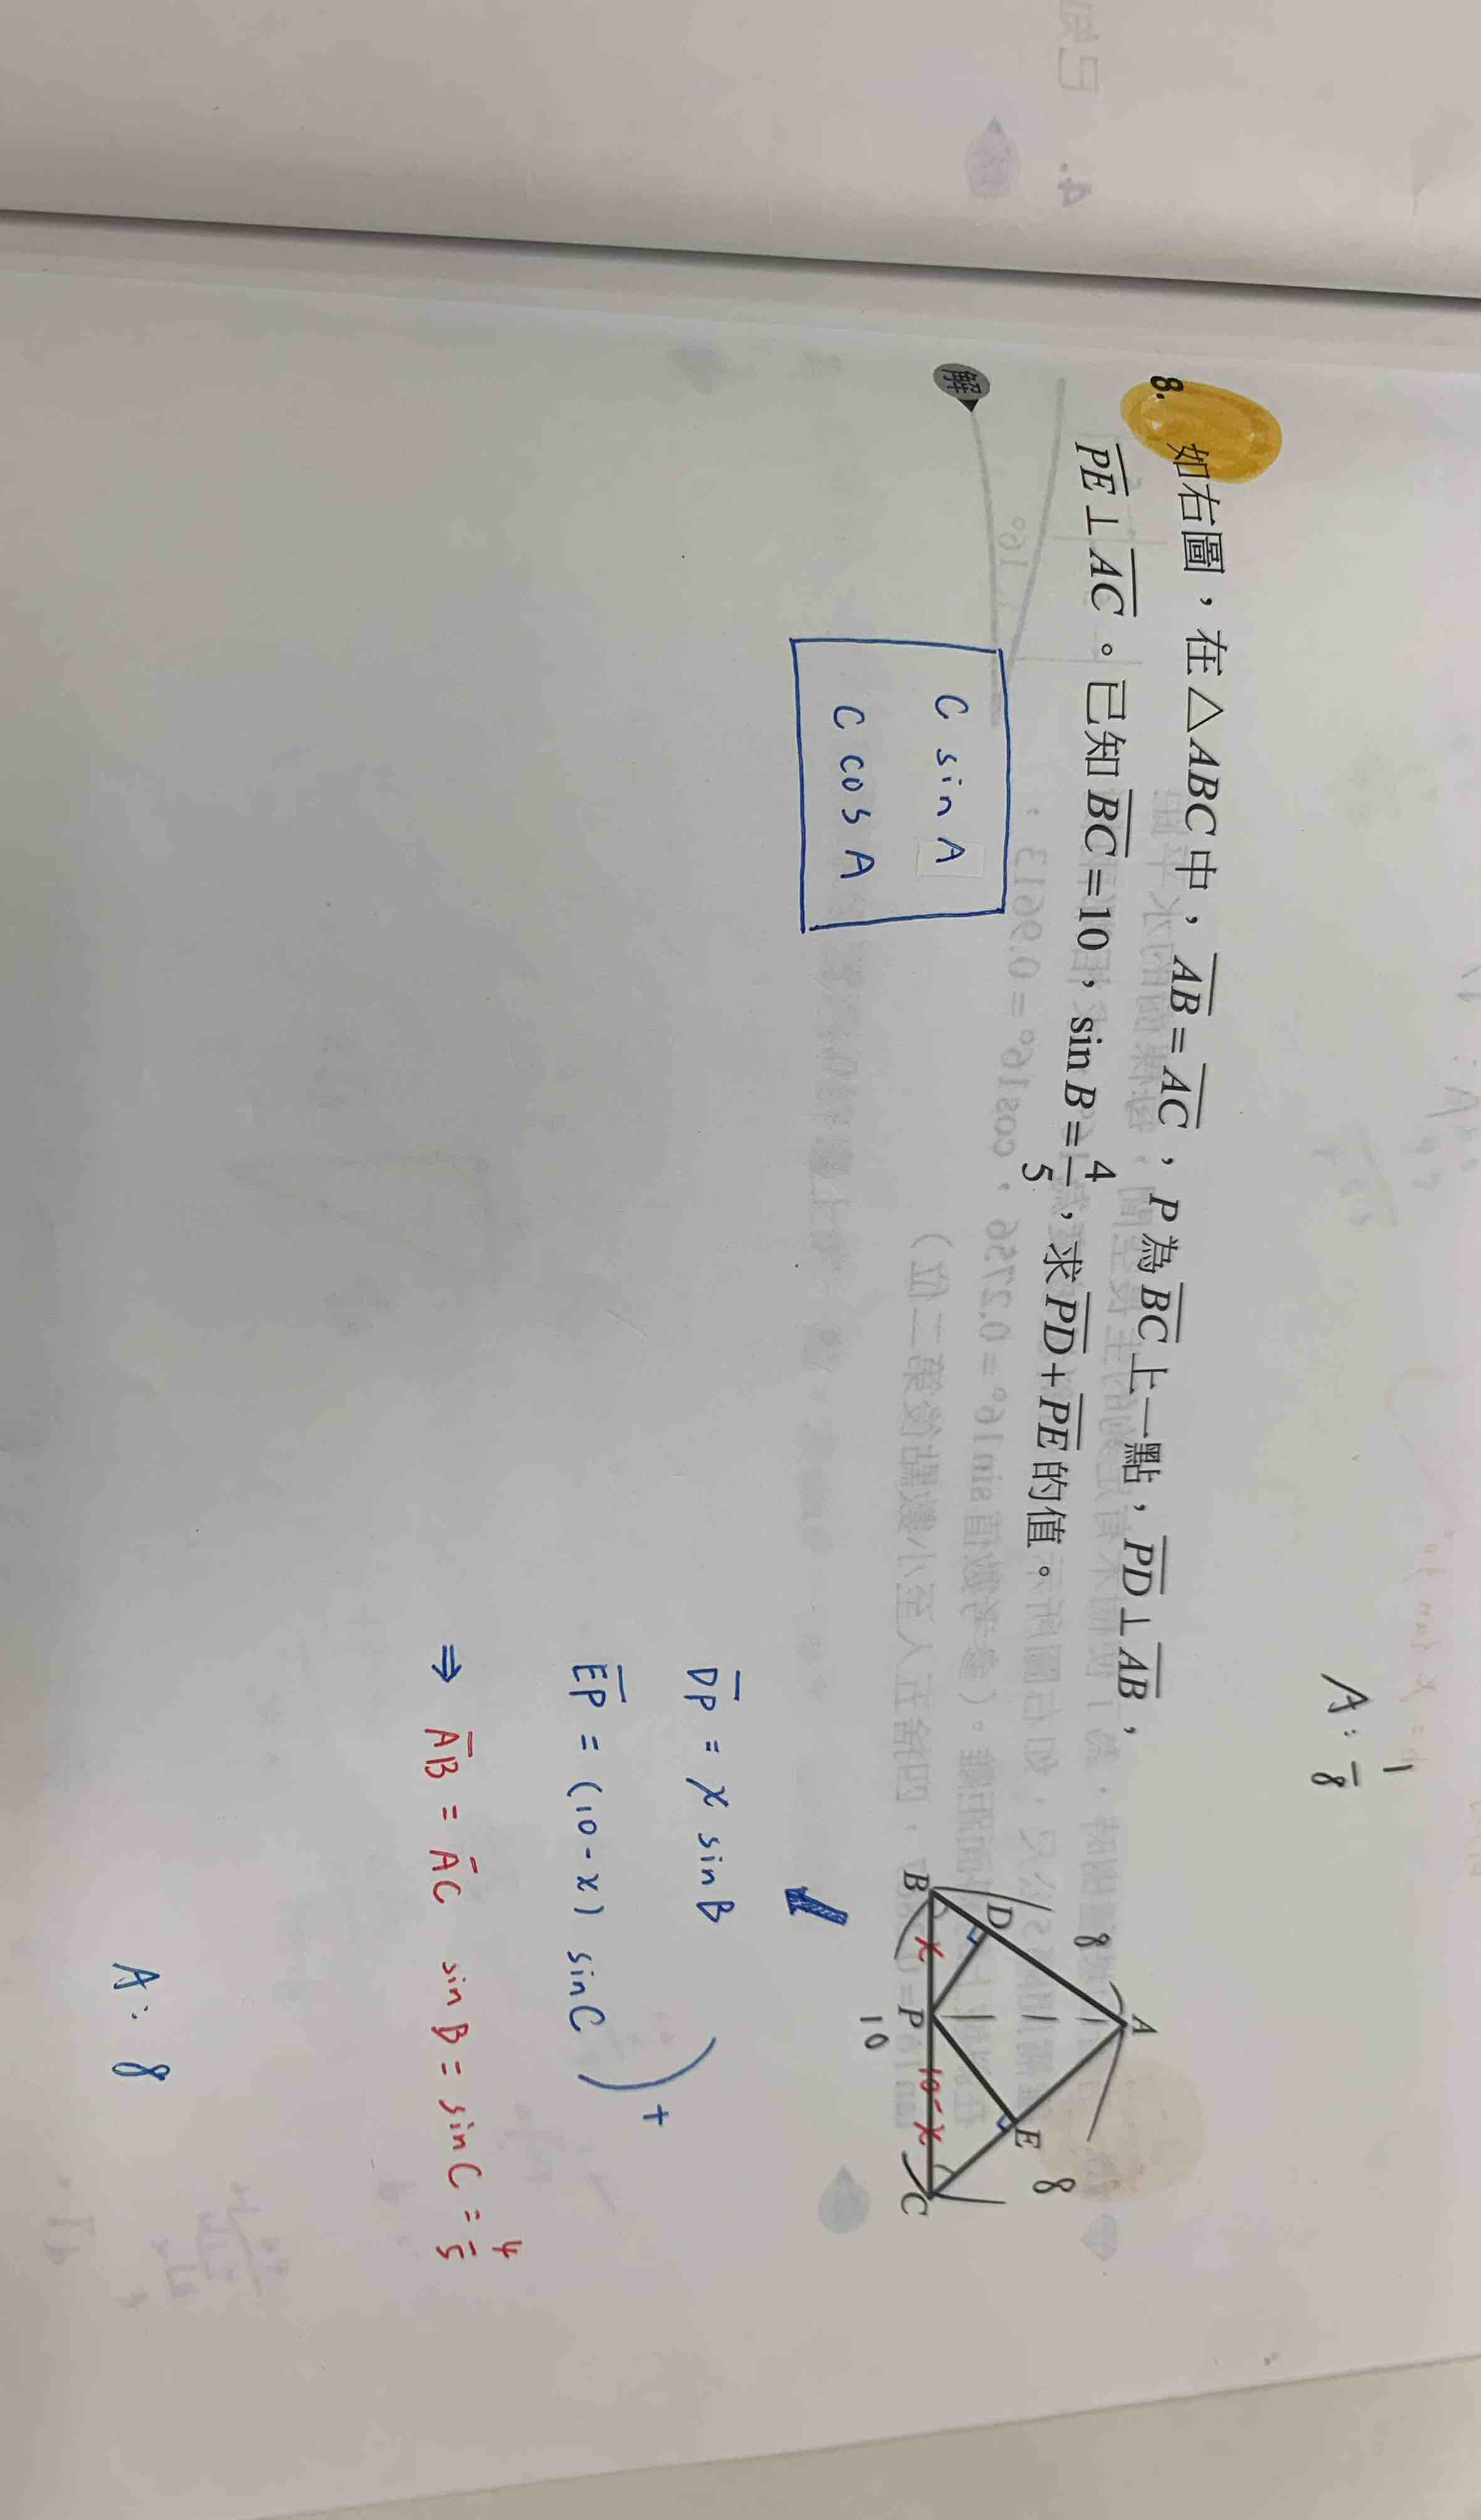 A: 1/8
8. 如右圖，在△ABC中，AB=AC，P為BC上一點，PD⊥AB，
PE⊥AC。已知BC=10，sin B=4/5，求PD+PE的值。
解
C sin A
C cos A
A
8
8
D
E
B
x
P
10-x
C
10
DP = x sin B
EP = (10-x) sin C
+
⇒ AB = AC sin B = sin C = 4/5
A: 8